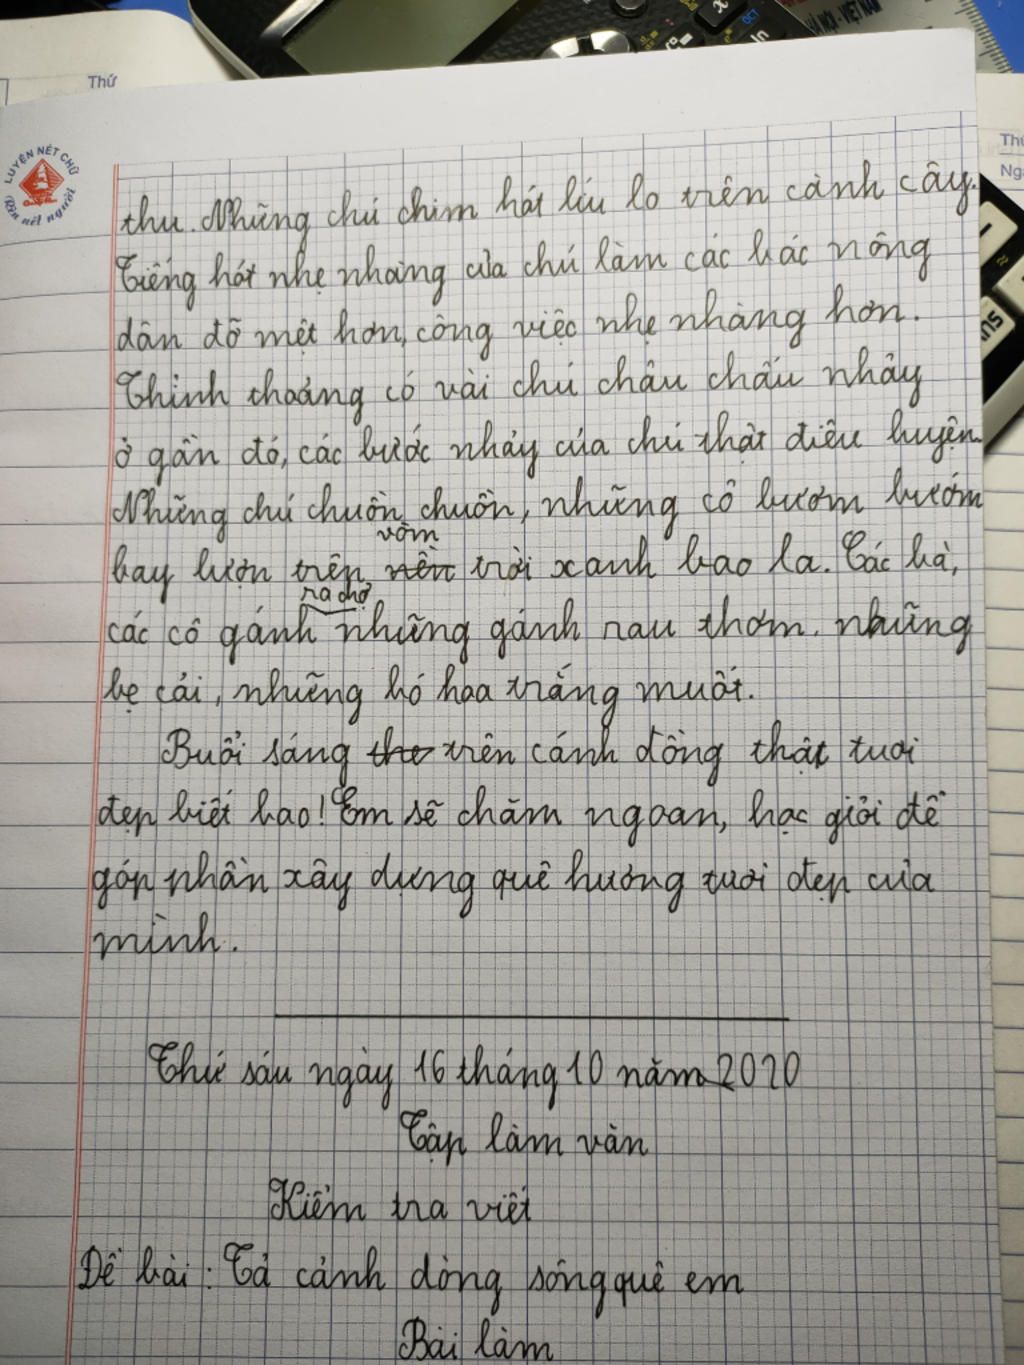 HÀ NỘI - VIỆT NAM
Thứ
Thứ
LUYỆN NÉT CHỮ
Rèn nết người
thu. Những chú chim hót líu lo trên cành cây.
Tiếng hót nhẹ nhàng của chú làm các bác nông
dân đỡ mệt hơn, công việc nhẹ nhàng hơn.
Thỉnh thoảng có vài chú châu chấu nhảy
ở gần đó, các bước nhảy của chú thật điêu luyện.
Những chú chuồn chuồn, những cô bươm bướm
vòm
bay lượn trên nền trời xanh bao la. Các bà,
ra chợ
các cô gánh những gánh rau thơm. những
bẹ cải, những bó hoa trắng muốt.
Buổi sáng the trên cánh đồng thật tươi
đẹp biết bao! Em sẽ chăm ngoan, học giỏi để
góp phần xây dựng quê hương tươi đẹp của
mình.
Thứ sáu ngày 16 tháng 10 năm 2020
Tập làm văn
Kiểm tra viết
Đề bài: Tả cảnh dòng sông quê em
Bài làm